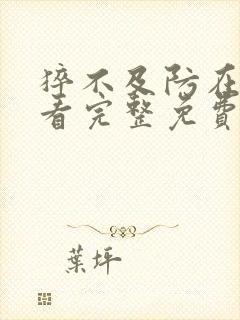 猝不及防在
看完整免費
葉坪